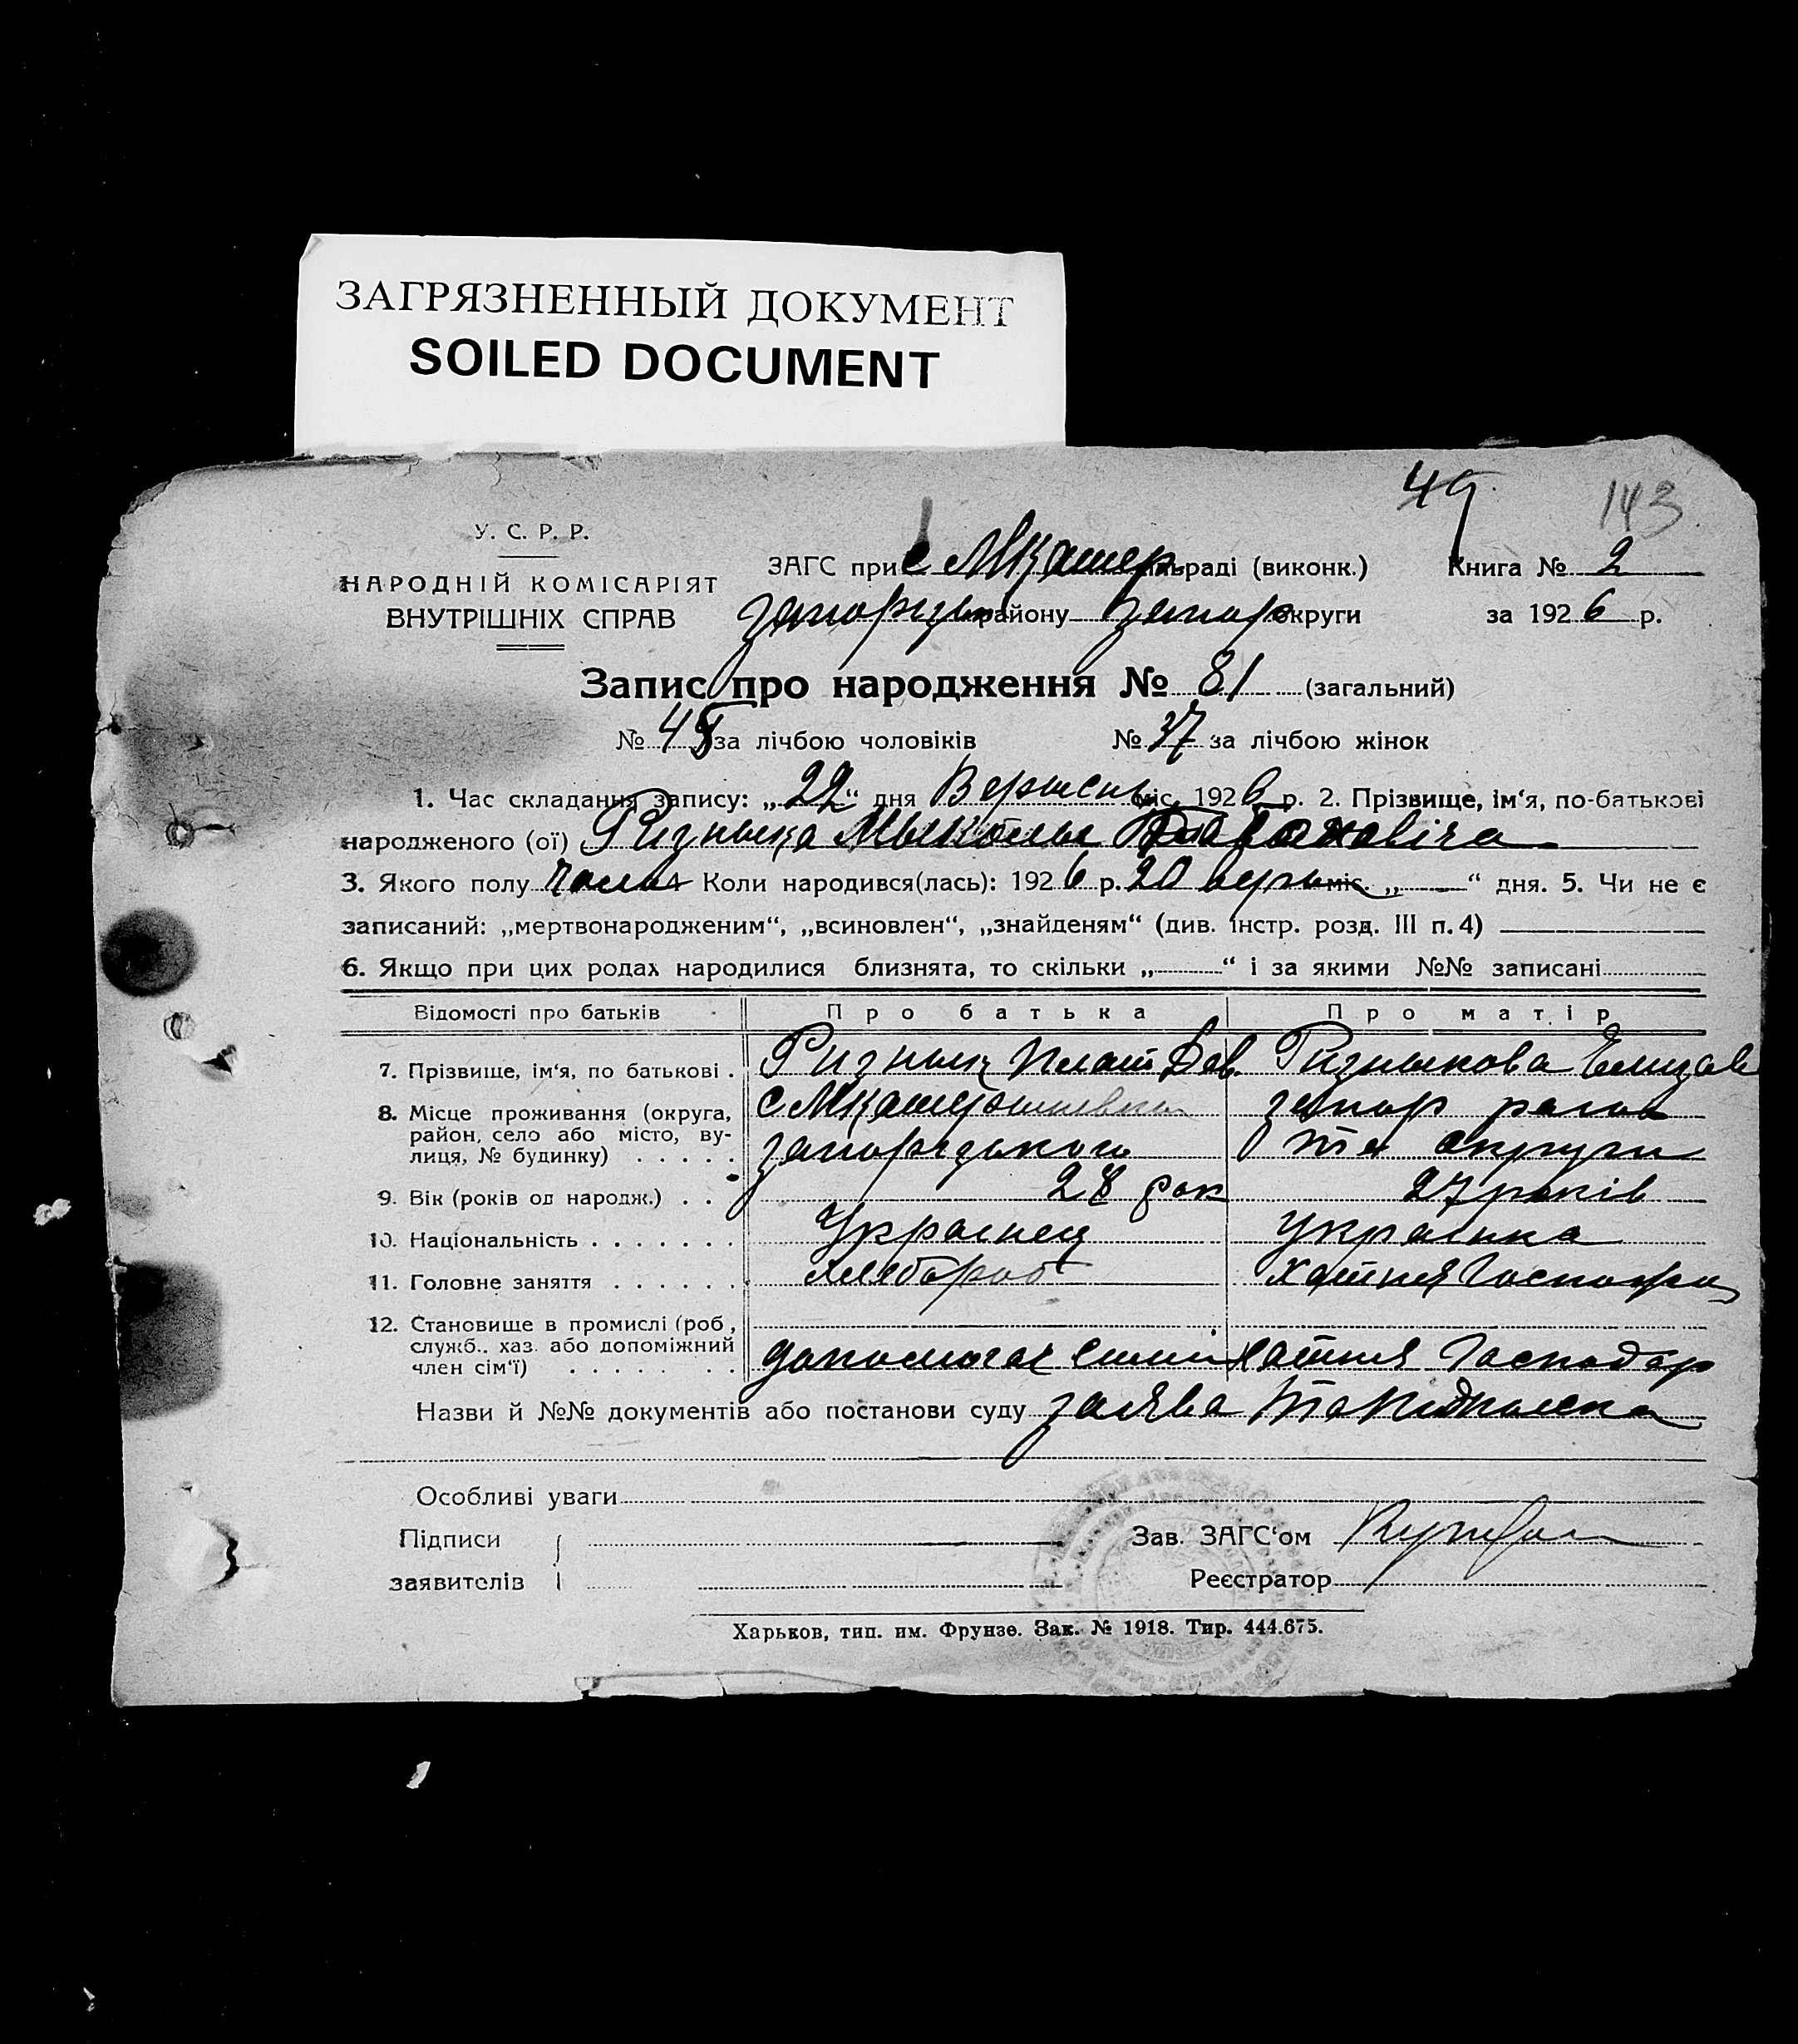 ЗАГРЯЗНЕННЫЙ ДОКУМЕНТ
SOILED DOCUMENT
49 143
У. С. Р. Р.
НАРОДНІЙ КОМІСАРІЯТ
ВНУТРІШНІХ СПРАВ
ЗАГС при с раді (виконк.) Книга № 2
району Запор округи за 1926 р.
Запис про народження № 81 (загальний)
№ 45 за лічбою чоловіків № 37 за лічбою жінок
1. Час складання запису: „22“ дня міс. 1926 р. 2. Прізвище, ім‘я, по-батькові
народженого (ої) Ризныка Мыколы
3. Якого полу чолов 4 Коли народився(лась): 1926 р. 20 міс. „ “ дня. 5. Чи не є
записаний: „мертвонародженим“, „всиновлен“, „знайденям“ (див. інстр. розд. III п. 4)
6. Якщо при цих родах народилися близнята, то скільки „ “ і за якими №№ записані
Відомості про батьків Про батька Про матір
7. Прізвище, ім‘я, по батькові . Ризнык Плат Дав. Ризныкова Елизав
8. Місце проживання (округа, запор
район, село або місто, ву- запорізького округи
лиця, № будинку) . . . . .
9. Вік (років од народж.) . . 28 рок 27 років
10. Національність . . . . . . . Украинец Украинка
11. Головне заняття . . . . . . хлебороб хатня Господар
12. Становище в промислі (роб,
служб., хаз. або допоміжний допомогає семьи хатня Господар
член сім‘ї) . . . . . . .
Назви й №№ документів або постанови суду заява
Особливі уваги
Підписи Зав. ЗАГС‘ом
заявителів Реєстратор
Харьков, тип. им. Фрунзе. Зак. № 1918. Тир. 444.675.